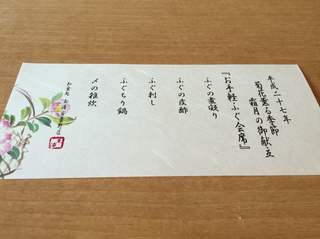 平成二十七年
菊花薫る季節
霜月の御献立
『お手軽ふぐ会席』
ふぐの煮凝り
ふぐの皮酢
ふぐ刺し
ふぐちり鍋
〆の雑炊